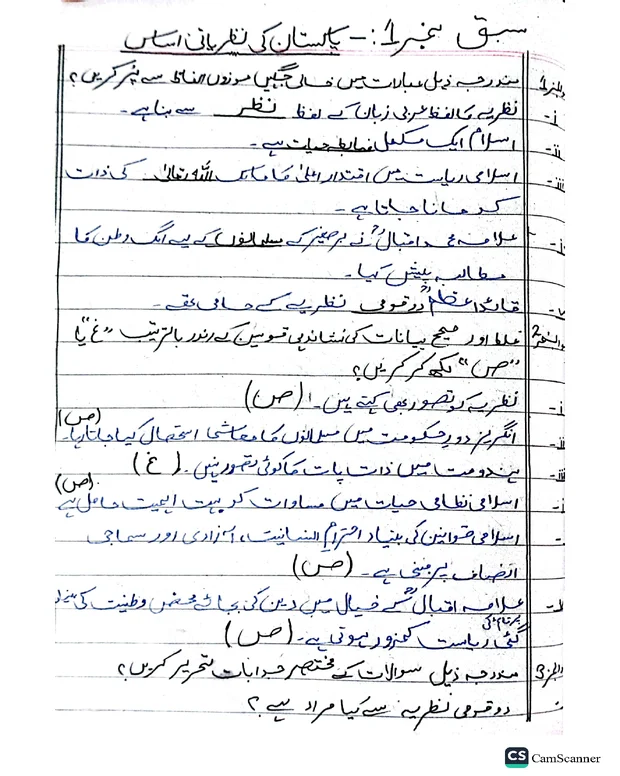 سبق نمبر 1:- پاکستان کی نظریاتی اساس
مندرجہ ذیل عبارات میں خالی جگہیں موزوں الفاظ سے پُر کریں؟
i- نظریہ کا لفظ عربی زبان کے لفظ نظر سے بنا ہے۔
ii- اسلام ایک مکمل ضابطہ حیات ہے۔
iii- اسلامی ریاست میں اقتدار اعلیٰ کا مالک اللہ تعالیٰ کی ذات
کو مانا جاتا ہے۔
علامہ محمد اقبالؒ نے برصغیر کے مسلمانوں کے لیے الگ وطن کا
مطالبہ پیش کیا۔
v- قائداعظمؒ دو قومی نظریے کے حامی تھے۔
غلط اور صحیح بیانات کی نشاندہی قوسین کے اندر بالترتیب "غ" یا
"ص" لکھ کر کریں؟
i- نظریہ کو تصور بھی کہتے ہیں۔ (ص)
ii- انگریز دورِ حکومت میں مسلمانوں کا معاشی استحصال کیا جاتا رہا۔ (ص)
iii- ہندومت میں ذات پات کا کوئی تصور نہیں۔ (غ)
اسلامی نظامی حیات میں مساوات کو بہت اہمیت حاصل ہے (ص)
اسلامی قوانین کی بنیاد احترامِ انسانیت، آزادی اور سماجی
انصاف پر مبنی ہے۔ (ص)
علامہ اقبالؒ کے خیال میں دین کی بجائے محض وطنیت کی بنیاد
پر قائم کی گئی ریاست کمزور ہوتی ہے۔ (ص)
مندرجہ ذیل سوالات کے مختصر جوابات تحریر کریں؟
دو قومی نظریہ سے کیا مراد ہے؟
CS CamScanner